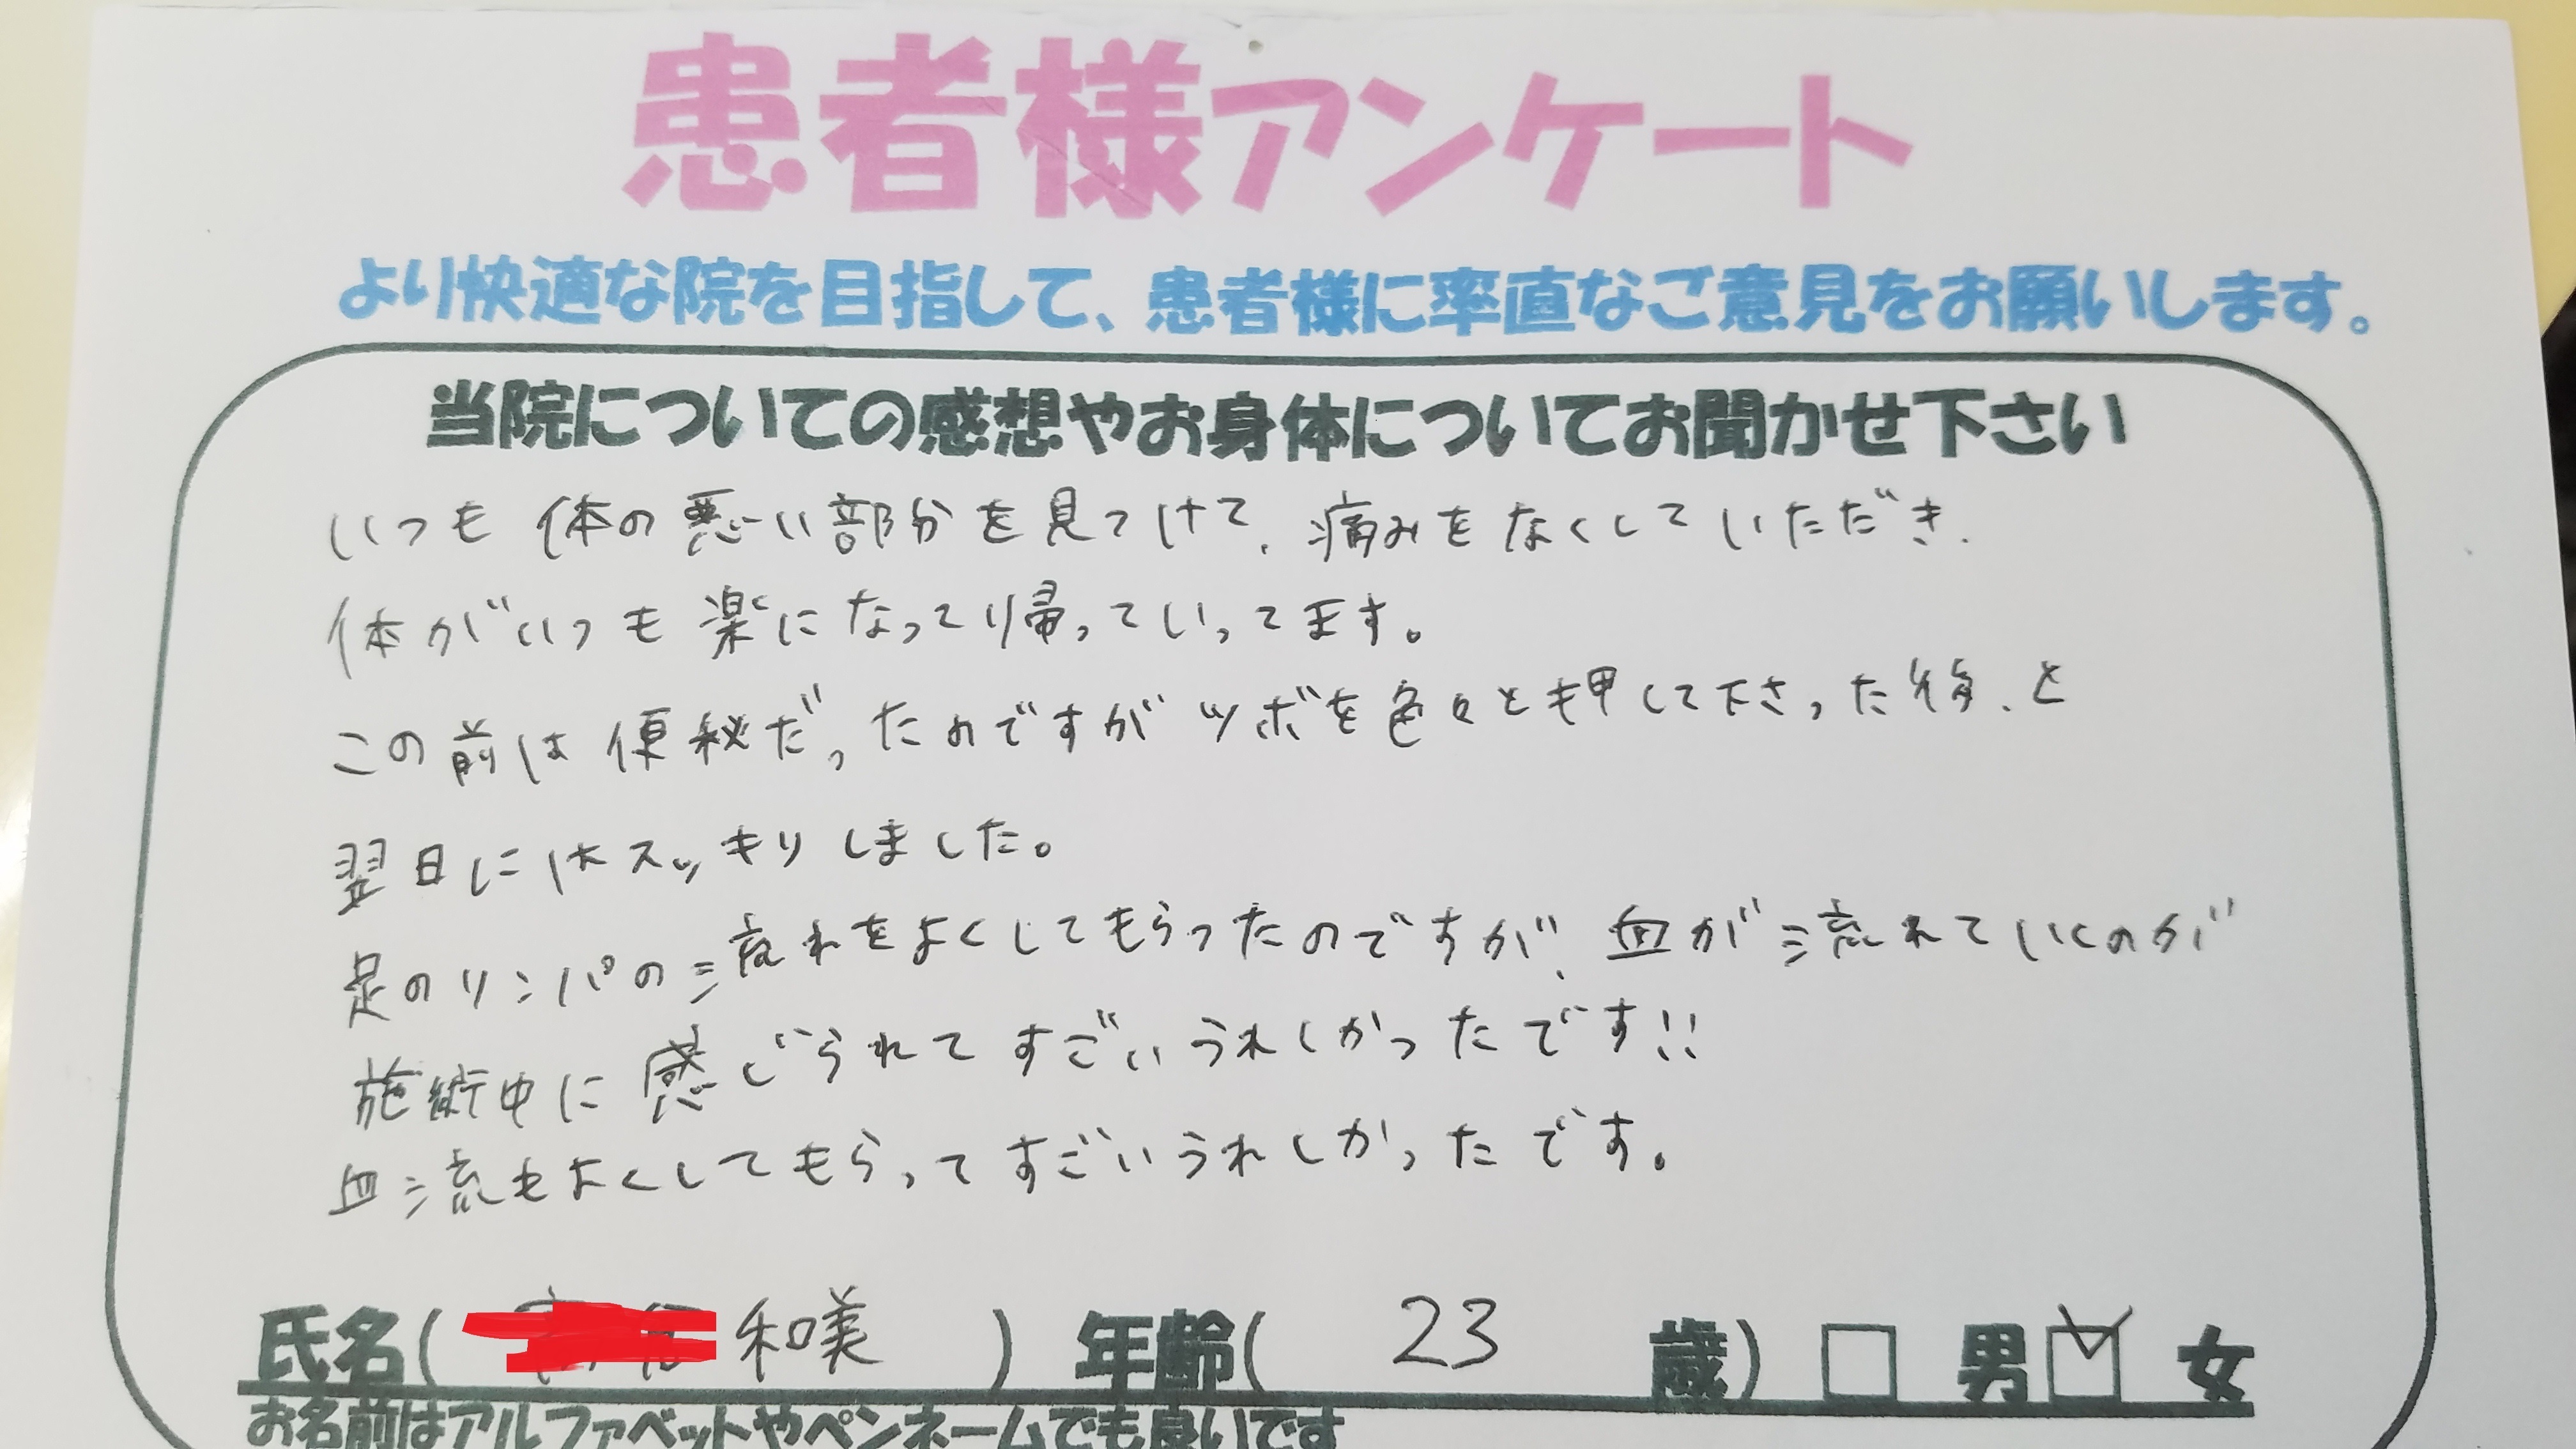 患者様アンケート
より快適な院を目指して、患者様に率直なご意見をお願いします。
当院についての感想やお身体についてお聞かせ下さい
いつも体の悪い部分を見つけて、痛みをなくしていただき、
体がいつも楽になって帰っていってます。
この前は便秘だったのですがツボを色々と押して下さった後、と
翌日にはスッキリしました。
足のリンパの流れをよくしてもらったのですが、血が流れていくのが
施術中に感じられてすごいうれしかったです!!
血流もよくしてもらってすごいうれしかったです。
氏名( 和美 ) 年齢( 23 歳) 男 女
お名前はアルファベットやペンネームでも良いです